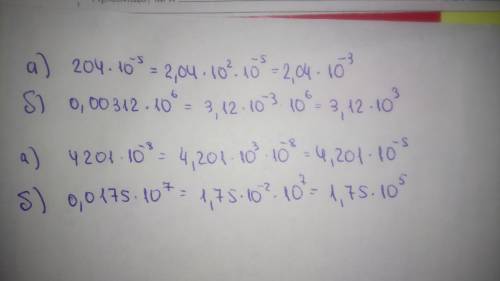 а) 204 · 10⁻⁵ = 2,04 · 10² · 10⁻⁵ = 2,04 · 10⁻³
б) 0,00312 · 10⁶ = 3,12 · 10⁻³ · 10⁶ = 3,12 · 10³
а) 4201 · 10⁻⁸ = 4,201 · 10³ · 10⁻⁸ = 4,201 · 10⁻⁵
б) 0,0175 · 10⁷ = 1,75 · 10⁻² · 10⁷ = 1,75 · 10⁵